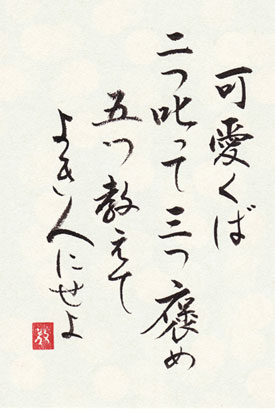 可愛くば
二つ叱って三つ褒め
五つ教えて
よき人にせよ